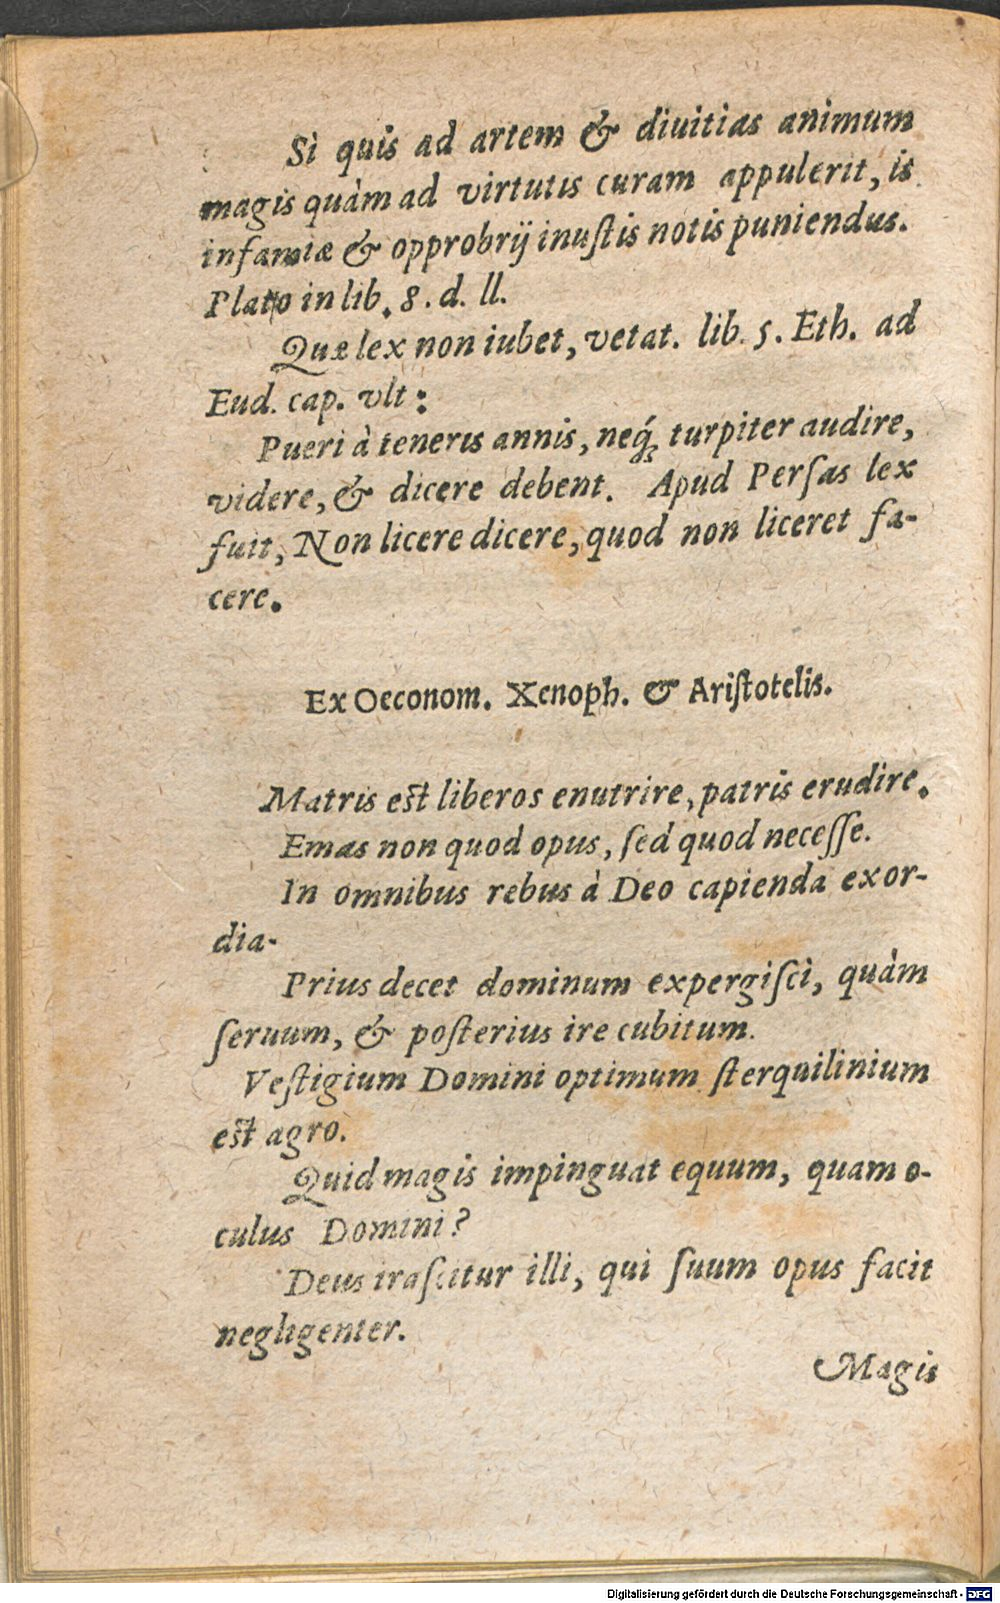 Si quis ad artem & diuitias animum
magis quàm ad virtutis curam appulerit, is
infamiæ & opprobrij inustis notis puniendus.
Plato in lib. 8. d. ll.
Quæ lex non iubet, vetat. lib. 5. Eth. ad
Eud. cap. vlt:
Pueri à teneris annis, neq́ꝫ turpiter audire,
videre, & dicere debent. Apud Persas lex
fuit, Non licere dicere, quod non liceret fa-
cere.
Ex Oeconom. Xenoph. & Aristotelis.
Matris est liberos enutrire, patris erudire.
Emas non quod opus, sed quod necesse.
In omnibus rebus à Deo capienda exor-
dia.
Prius decet dominum expergisci, quàm
seruum, & posterius ire cubitum.
Vestigium Domini optimum sterquilinium
est agro.
Quid magis impinguat equum, quam o-
culus Domini?
Deus irascitur illi, qui suum opus facit
negligenter.
Magis
Digitalisierung gefördert durch die Deutsche Forschungsgemeinschaft - DFG